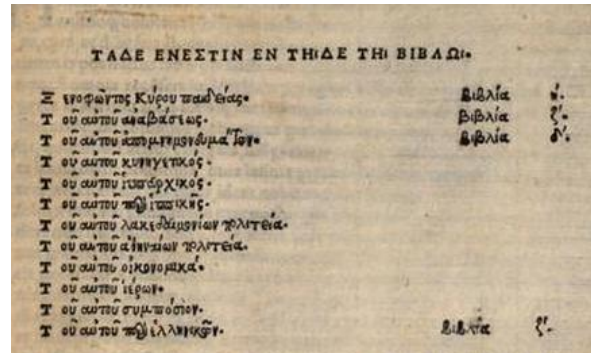 ΤΑΔΕ ΕΝΕΣΤΙΝ ΕΝ ΤΗΙΔΕ ΤΗΙ ΒΙΒΛΩΙ.
Ξενοφῶντος Κύρου παιδείας. Βιβλία ή.
Τοῦ αὐτοῦ ἀναβάσεως. Βιβλία ζ'.
Τοῦ αὐτοῦ ἀπομνημονευμάτων. Βιβλία δ'.
Τοῦ αὐτοῦ κυνηγετικός.
Τοῦ αὐτοῦ ἱππαρχικός.
Τοῦ αὐτοῦ περὶ ἱππικῆς.
Τοῦ αὐτοῦ λακεδαιμονίων πολιτεία.
Τοῦ αὐτοῦ ἀθηναίων πολιτεία.
Τοῦ αὐτοῦ οἰκονομικά.
Τοῦ αὐτοῦ ἱέρων.
Τοῦ αὐτοῦ συμπόσιον.
Τοῦ αὐτοῦ περὶ ἑλληνικῶν. Βιβλία ζ'.